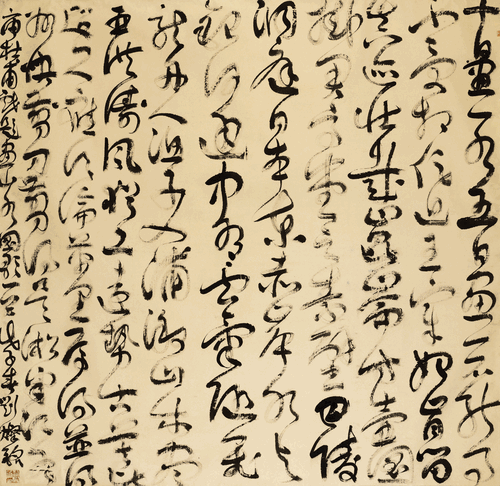 十日畫一水五日畫一石能事
不受相促迫王宰始肯留
真跡壯哉崑崙方壺圖
掛君高堂之素壁巴陵
洞庭日本東赤岸水與
銀河通中有雲氣隨飛
龍舟人漁子入浦漵山木盡
亞洪濤風尤工遠勢古莫比
咫尺應須論萬里焉得并
州快剪刀剪取吳淞半江水
杜甫戲題畫山水圖歌一 戊子春劉燦銘